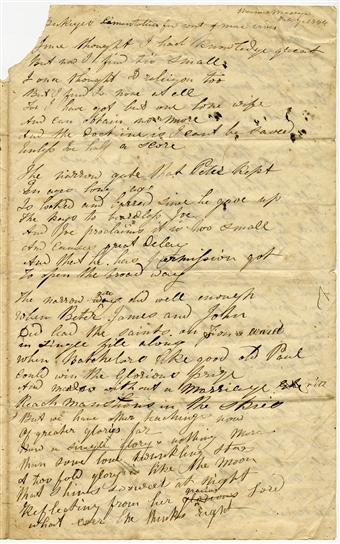 Buckeyes Lamentation for want of more wives
Once thought I had knowledge great
But now I find tis small
I once thought I religion too
But I find Ive none at all
For I have got but one lone wife
And can obtain no more
And the doctrine is I cant be saved
Unless Ive half a score
The narrow gate that Peter kept
In ages long ago
Is locked and barred since he gave up
The keys to beardless Joe
And Joe proclaims it is too small
And causes great delay
And that he has permission got
To open the broad way
The narrow gate did well enough
When Peter James and John
Did lead the saints on Zion ward
in Single file along
When Bachelors like good old Paul
Could win the Glorious prize
And maids without a Marriage rite
Reach mansions in the Skies
But we have other teachings now
Of greater glories far
How a single glory's nothing More
Than some lone twinkling star
A ten fold glory is like the Moon
That Shines so sweet at Night
Reflecting from her gracious Lord
what ever he thinks right